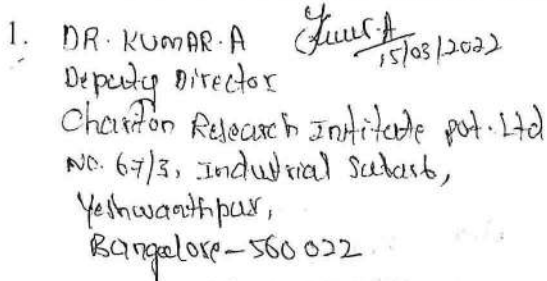 1. DR. KUMAR. A
15/03/2022
Deputy Director
Chariton Research Institute pvt. Ltd
No. 67/3, Industrial Suburb,
Yeshwanthpur,
Bangalore - 560 022